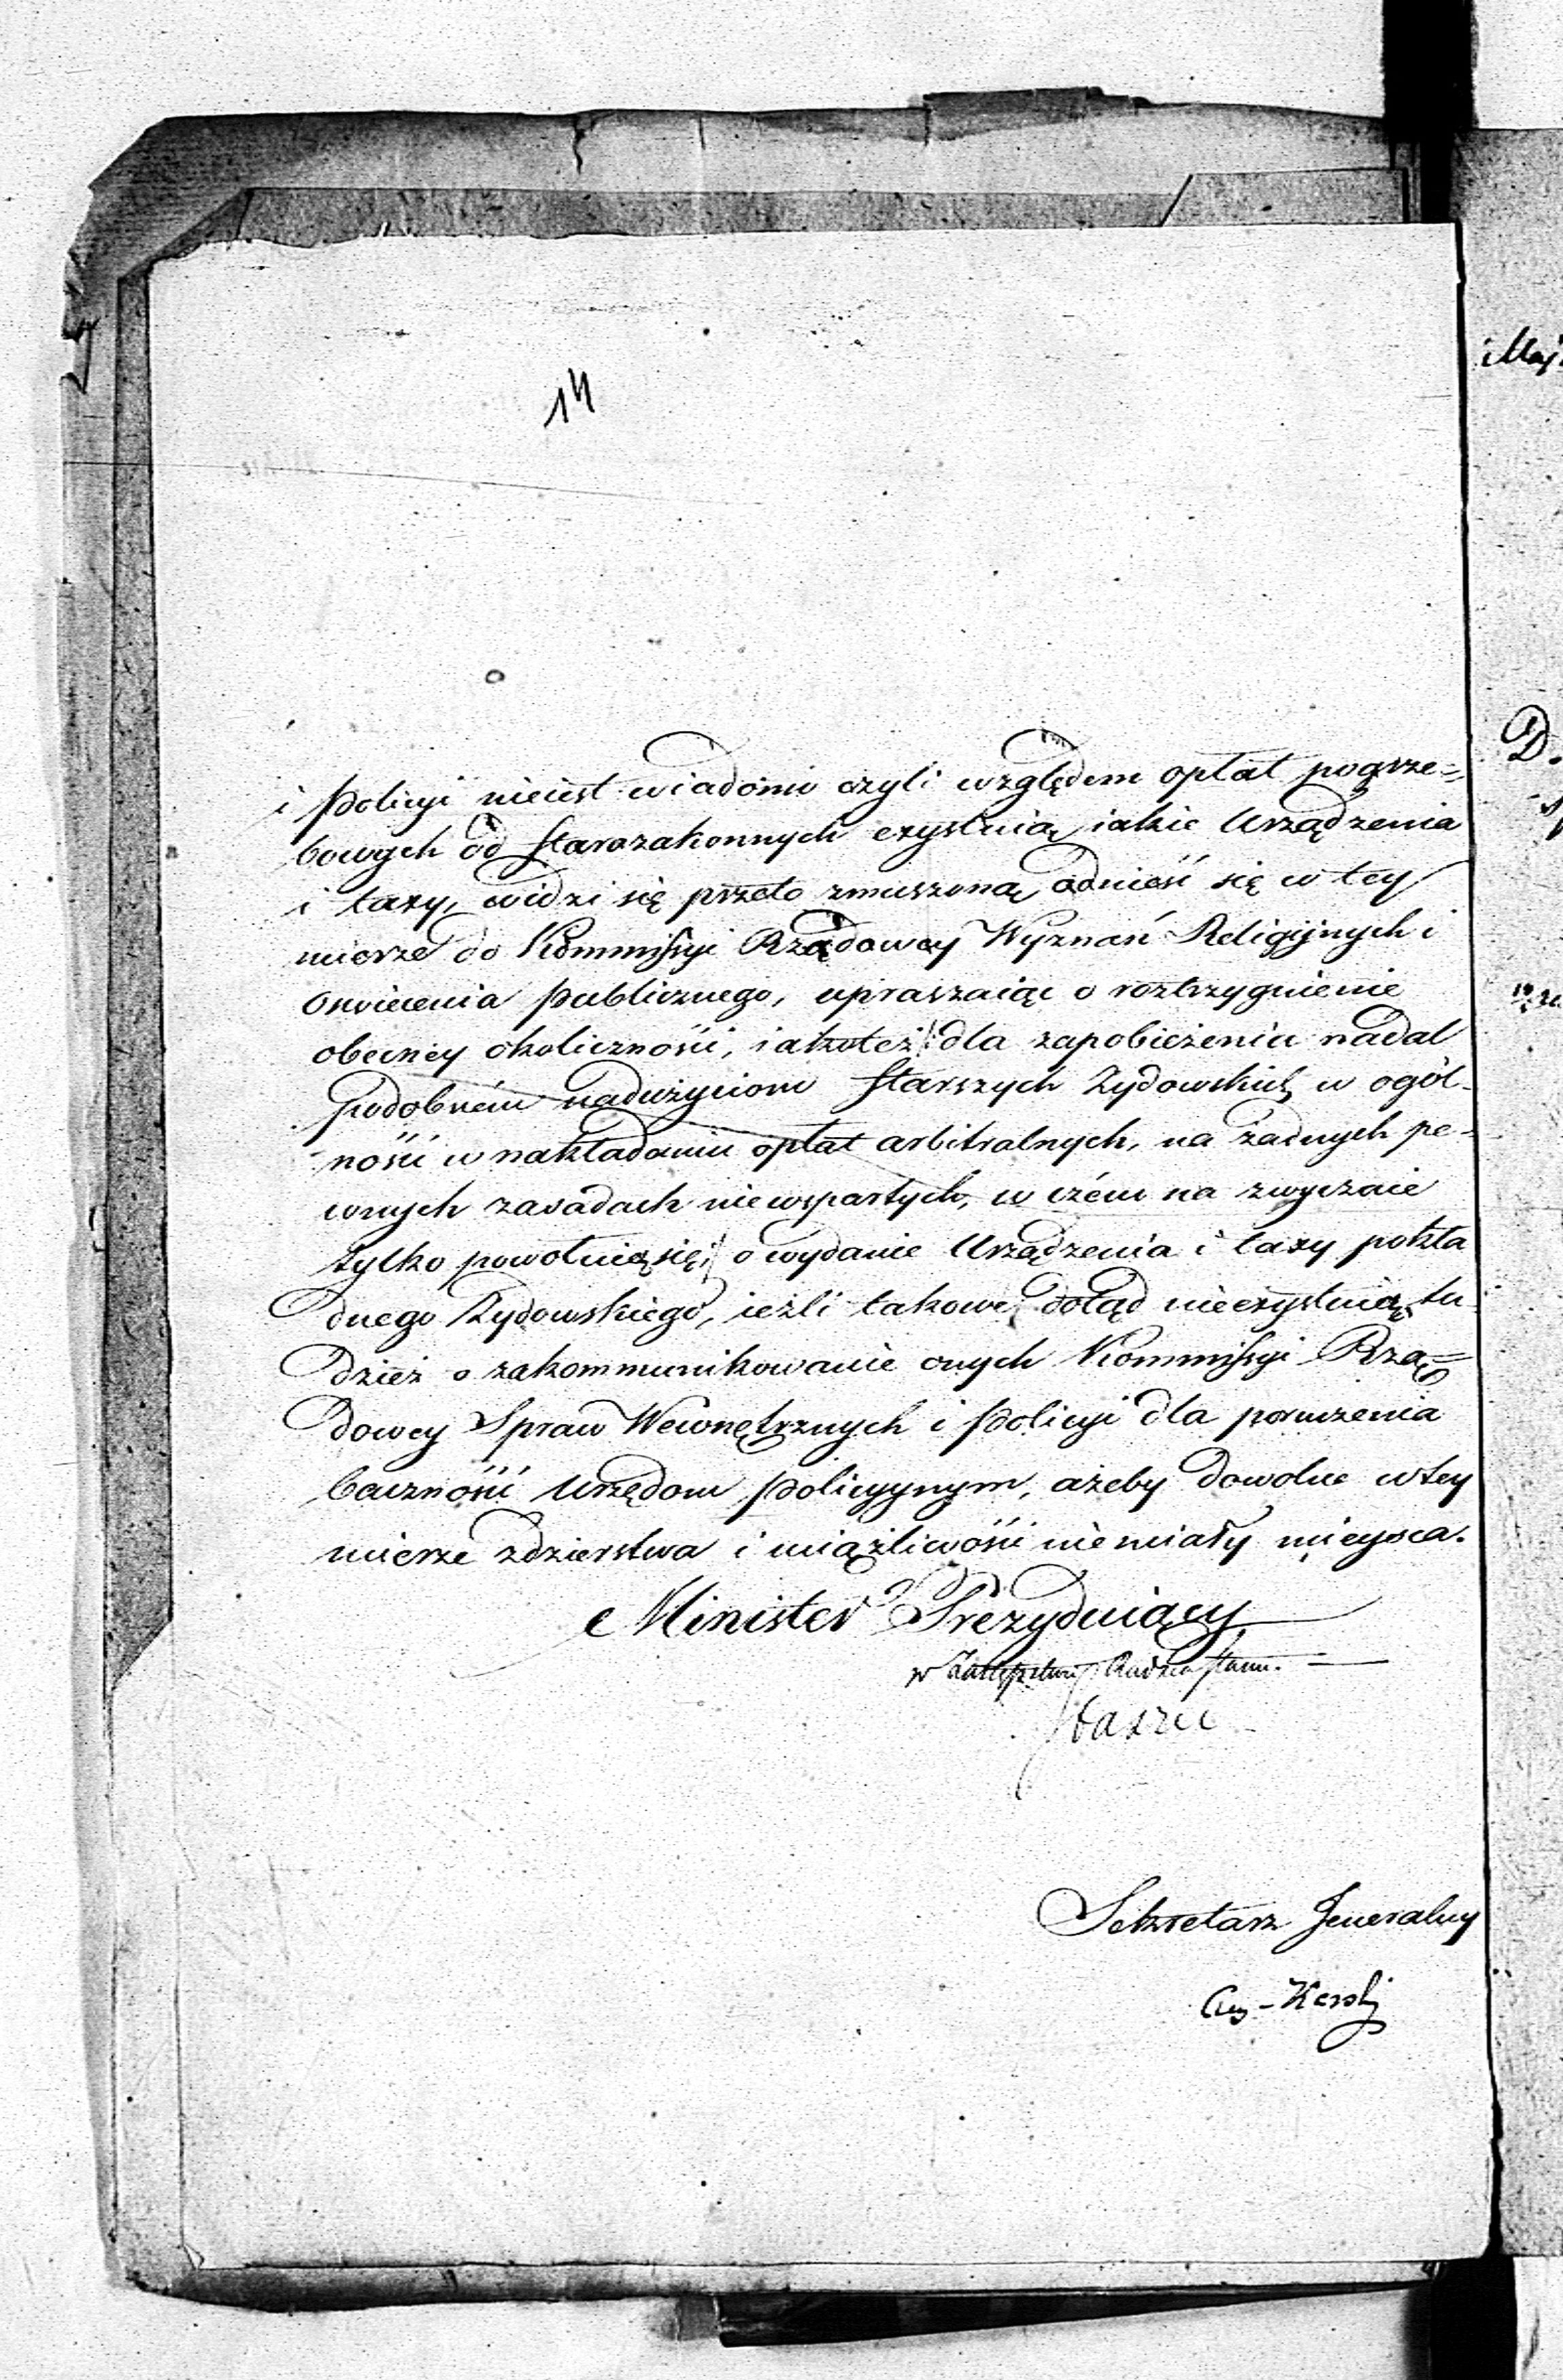 14
i Policyi nieiest wiadomo czyli względem opłat pogrze=
bowych od Starozakonnych exystuią iakie Urządzenia
i taxy, widzi się przeto zmuszoną odnieść się w tey
mierze do Kommissyi Rządowey Wyznań Religijnych i
Oswiecenia Publicznego, upraszaiąc o roztrzygnienie
obecney okoliczności, iakoteż dla zapobieżenia nadal
podobném nadużyciom Starszych Żydowskich w ogól-
ności w nakładaniu opłat arbitralnych, na żadnych pe-
wnych zasadach niewspartych, w czém na zwyczaie
tylko powołuią się, o wydanie Urządzenia i taxy pokła
dnego Żydowskiego, ieżli takowe dotąd nieexystuią, tu
dzież o zakommunikowanie onych Kommissyi Rzą=
dowey Spraw Wewnętrznych i Policyi dla poruczenia
baczności Urzędom Policyynym, ażeby dowolne w tey
mierze zdzierstwa i uciążliwości niemiały mieysca.
Minister Prezyduiący
w Zastępstwie Radca Stanu.
Staszic
Sekretarz Jeneralny
Aug-Karski